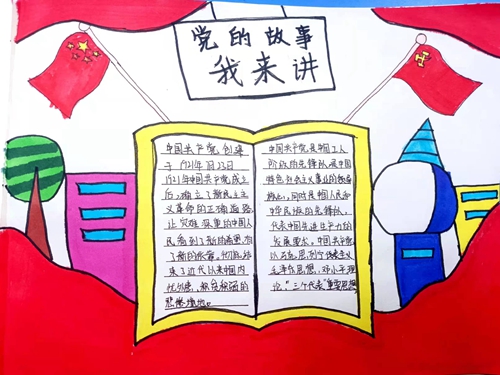 党的故事
我来讲
中国共产党,创建
于1921年7月23日
1921年中国共产党成立
后,确立了新民主主
义革命的正确道路,
让灾难深重的中国人
民看到了新的希望,有
了新的依靠。
来了近代以来中国内
忧外患,被色积弱的
悲惨境地。
中国共产党是中国工人
阶级的先锋队,是中国
特色社会主义事业的领导
核心,同时是中国人民和
中华民族的先锋队,
代表中国先进生产力的
发展要求,中国共产党
以马克思列宁主义
毛泽东思想,邓小平理
论,“三个代表”重要思想